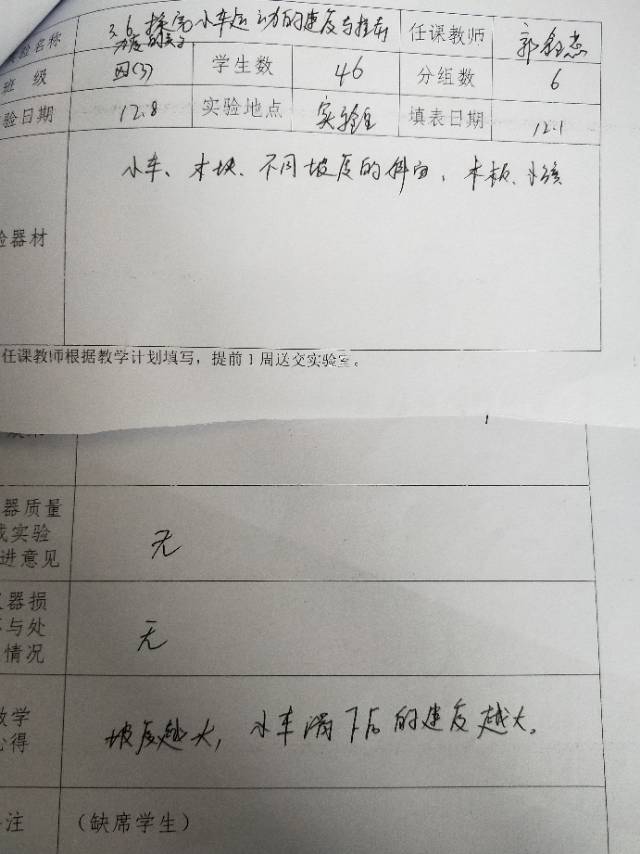 验名称 3.6 探究小车运动的速度与推动力度的关系 任课教师 郭 杰
班 级 四(3) 学生数 46 分组数 6
验日期 12.8 实验地点 实验室 填表日期 12.1
小车、木块、不同坡度的斜面、木板、
验器材
任课教师根据教学计划填写，提前1周送交实验室。
器质量
成实验
进意见
无
器损
与处
情况
无
教学
心得
坡度越大，小车滑下后的速度越大。
注 （缺席学生）